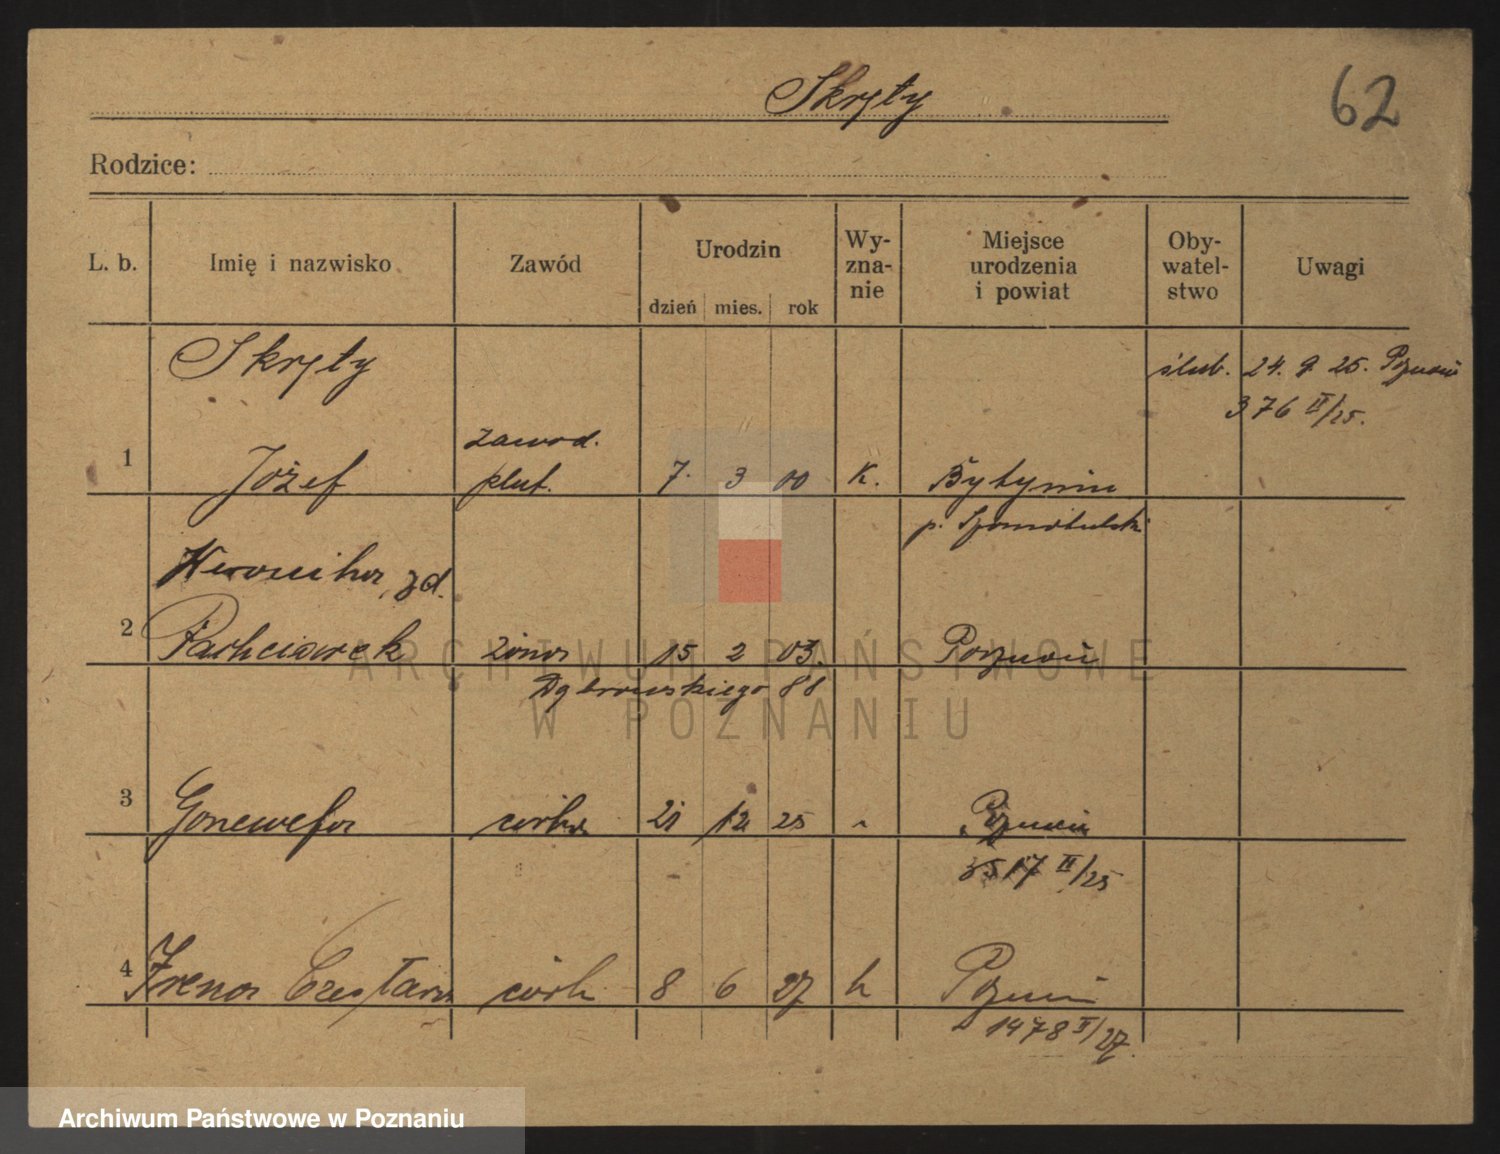 Skryty
62
Rodzice:
L. b. Imię i nazwisko Zawód Urodzin dzień mies. rok Wy-zna-nie Miejsce urodzenia i powiat Oby-watel-stwo Uwagi
Skryty ślub. 24. 9 25. Poznań
376 II/25.
1 Józef zawod. plut. 7. 3 00 K. Bytyniu
p. Szamotulski
Weronika, zd.
2 żona 15 2 03. Poznań
Dąbrowskiego 88
3 Genewefa córka 21 12 25 " Poznań
3517 II/25
4 Irena córk 8 6 27 k Poznań
1478 I/27.
ARCHIWUM PAŃSTWOWE
W POZNANIU
Archiwum Państwowe w Poznaniu